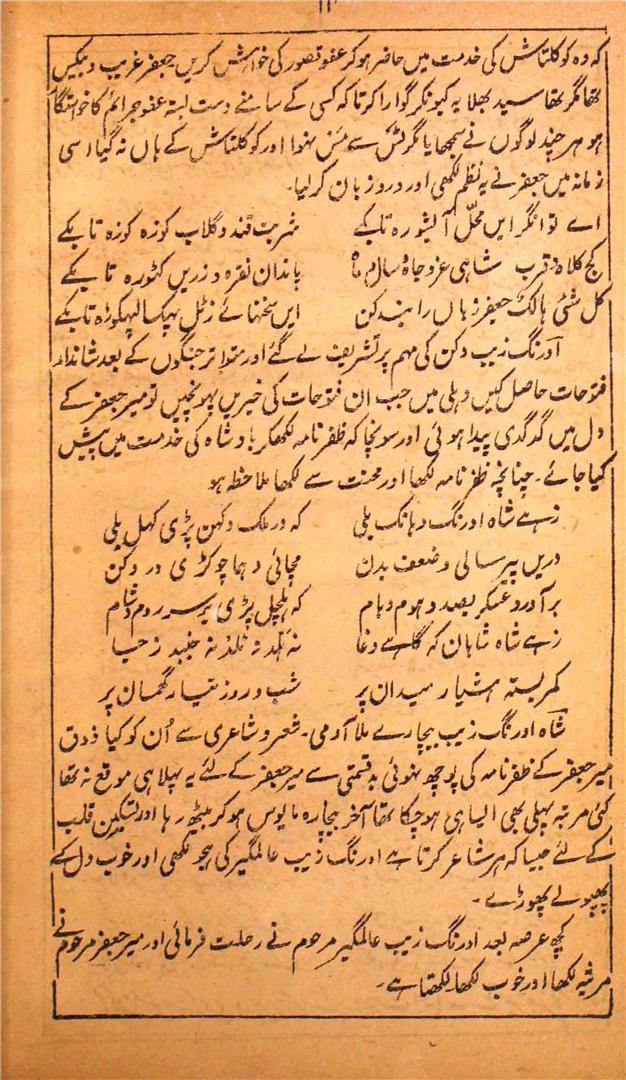 ۱۲
کہ وہ کوکلتاش کی خدمت میں حاضر ہوکر عفو قصور کی خواہش کریں جعفر غریب و بیکس
تھا مگر تھا سید بھلا یہ کیونکر گوارا کرتا کہ کسی کے سامنے دست بستہ عفو جرائم کا خواستگار
ہو ہر چند لوگوں نے سمجھایا مگر ٹس سے مس نہوا اور کوکلتاش کے ہاں نہ گیا اسی
زمانہ میں جعفر نے یہ نظم لکھی اور ورد زبان کرلیا۔
اے توانگر ایں محل آیشورہ تابکے شربت قند و گلاب کوزہ کوزہ تابکے
کج کلاہ و قرب شاہی عز و جاہ و سال و ماہ پاندان نقرہ و زریں کٹورہ تابکے
کل شئی ہالک جعفر زباں را بند کن ایں سخنہائے زٹل تابکے
اورنگ زیب دکن کی مہم پر تشریف لے گئے اور متواتر جنگوں کے بعد شاندار
فتوحات حاصل کیں دہلی میں جب ان فتوحات کی خبریں پہونچیں تو میر جعفر کے
دل میں گدگدی پیدا ہوئی اور سونچا کہ ظفرنامہ لکھکر بادشاہ کی خدمت میں پیش
کیا جائے۔ چنانچہ ظفرنامہ لکھا اور محنت سے لکھا ملاحظہ ہو
زہے شاہ اورنگ دہانک بلی کہ در ملک دکھن پڑی کھل بلی
دریں پیر سالی و ضعف بدن مچائی دہما چوکڑی در دکن
برآورد عسکر بصد دھوم دہام کہ ہلچل پڑی بر سر روم و شام
زہے شاہ شاہان کہ گاہے وغا نہ ہلد نہ ٹلد نہ جنبد ز جا
کمربستہ اشیار میدان پر شب و روز تیار گھمسان پر
شاہ اورنگ زیب بیچارے ملا آدمی۔ شعر و شاعری سے اُن کو کیا ذوق
میر جعفر کے ظفرنامہ کی پوچھ نہوئی بدقسمتی سے میر جعفر کے لئے یہ پہلا ہی موقع نہ تھا
کئی مرتبہ پہلی بھی ایسا ہی ہوچکا تھا آخر بیچارہ مایوس ہوکر بیٹھ رہا اور تسکین قلب
کے لئے جیسا کہ ہر شاعر کرتا ہے اورنگ زیب عالمگیر کی ہجو لکھی اور خوب دل کے
پھپولے پھوڑے۔
کچھ عرصہ بعد اورنگ زیب عالمگیر مرحوم نے رحلت فرمائی اور میر جعفر مرحوم نے
مرثیہ لکھا اور خوب لکھا لکھتا ہے۔